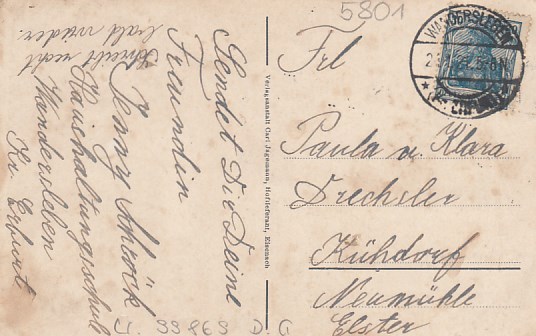 5801
Sendet Dir Deine
Freundin
Jenny Schröck
Haushaltungsschule
Wandersleben
Kr. Erfurt
Schreibt recht
bald wieder.
Verlagsanstalt Carl Jagemann, Hoflieferant, Eisenach
WANDERSLEBEN
Frl
Paula u Klara
Drechsler
Kühdorf
Neumühle
Elster
33863 D G